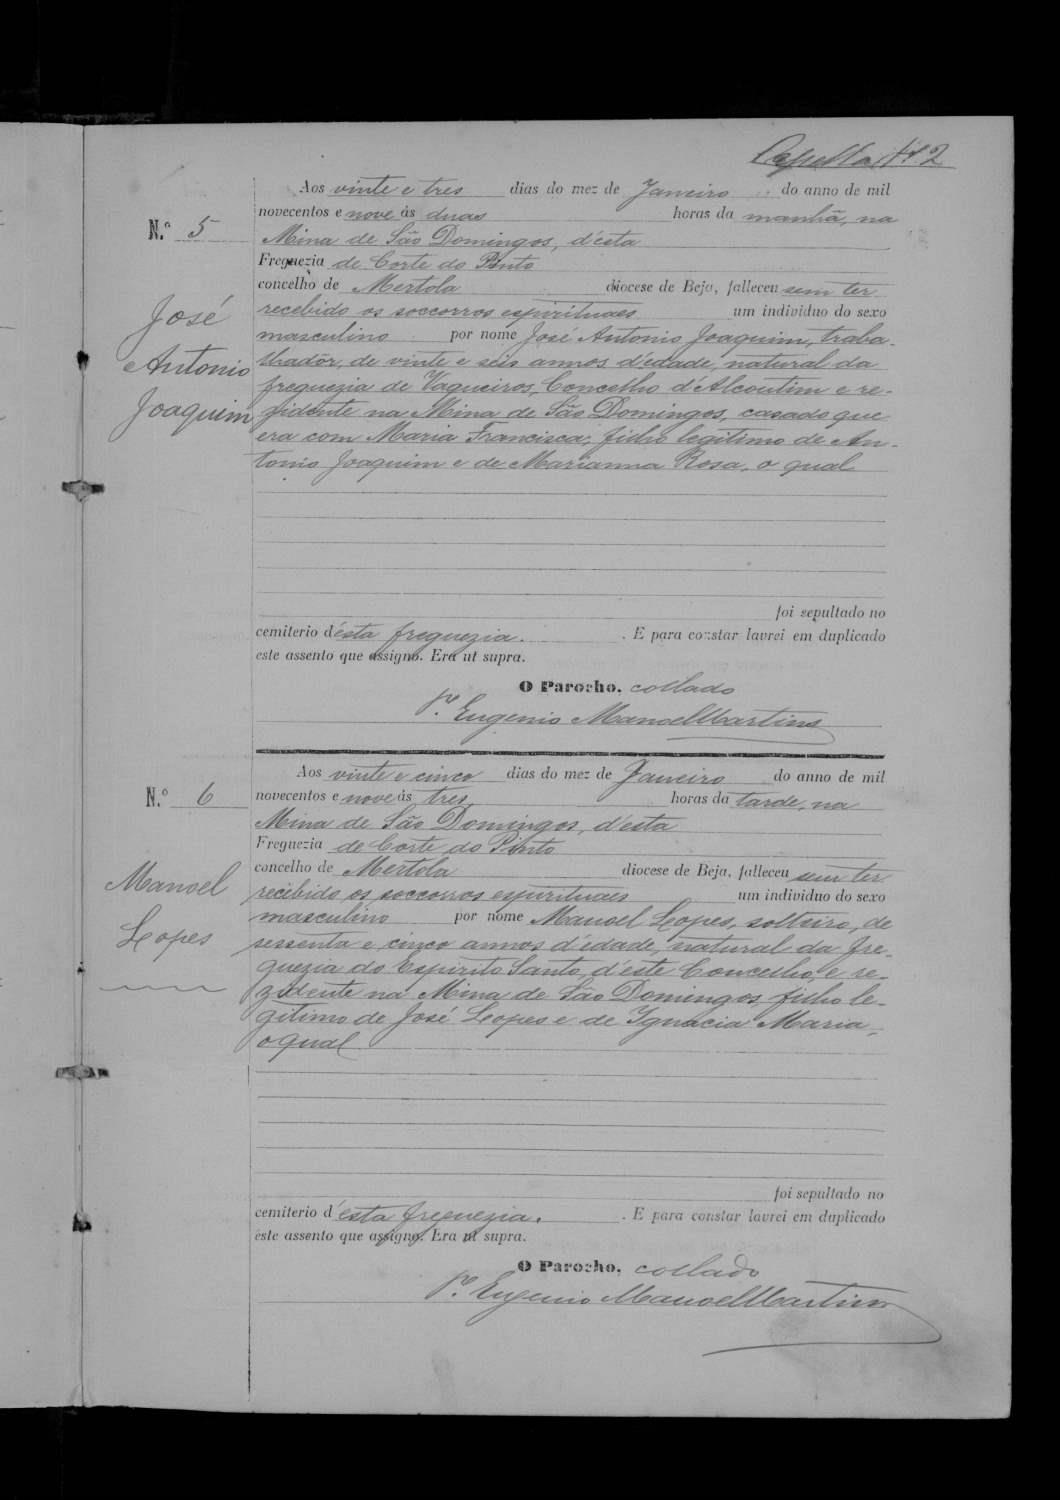 Capella Nº 2
Aos vinte e tres dias do mez de Janeiro do anno de mil
novecentos e nove ás duas horas da manhã, na
N.º 5
Mina de São Domingos, d'ésta
Freguezia de Corte do Pinto
concelho de Mertola diocese de Beja, falleceu sem ter
recebido os soccorros espirituaes um individuo do sexo
José
Antonio
Joaquim
masculino por nome José Antonio Joaquim, traba-
lhadôr, de vinte e seis annos d'edade, natural da
freguezia de Vaqueiros, Concelho d'Alcoutim e re-
zidente na Mina de São Domingos, casado que
era com Maria Francisca; filho legitimo de An-
tonio Joaquim e de Marianna Rosa, o qual
foi sepultado no
cemiterio d'ésta freguezia. E para constar lavrei em duplicado
este assento que assigno. Era ut supra.
O Parocho, collado
P.e Eugenio Manoel Martins
Aos vinte e cinco dias do mez de Janeiro do anno de mil
N.º 6
novecentos e nove ás tres horas da tarde, na
Mina de São Domingos, d'esta
Freguezia de Corte do Pinto
concelho de Mertola diocese de Beja, falleceu sem ter
recebido os soccorros espirituaes um individuo do sexo
Manoel
Lopes
masculino por nome Manoel Lopes, solteiro, de
sessenta e cinco annos d'édade, natural da fre-
guezia do Espirito Santo, d'éste Concelho, e re-
zidente na Mina de São Domingos, filho le-
gitimo de José Lopes e de Ignacia Maria,
o qual
foi sepultado no
cemiterio d'esta freguezia. E para constar lavrei em duplicado
este assento que assigno. Era ut supra.
O Parocho, collado
P.e Eugenio Manoel Martins